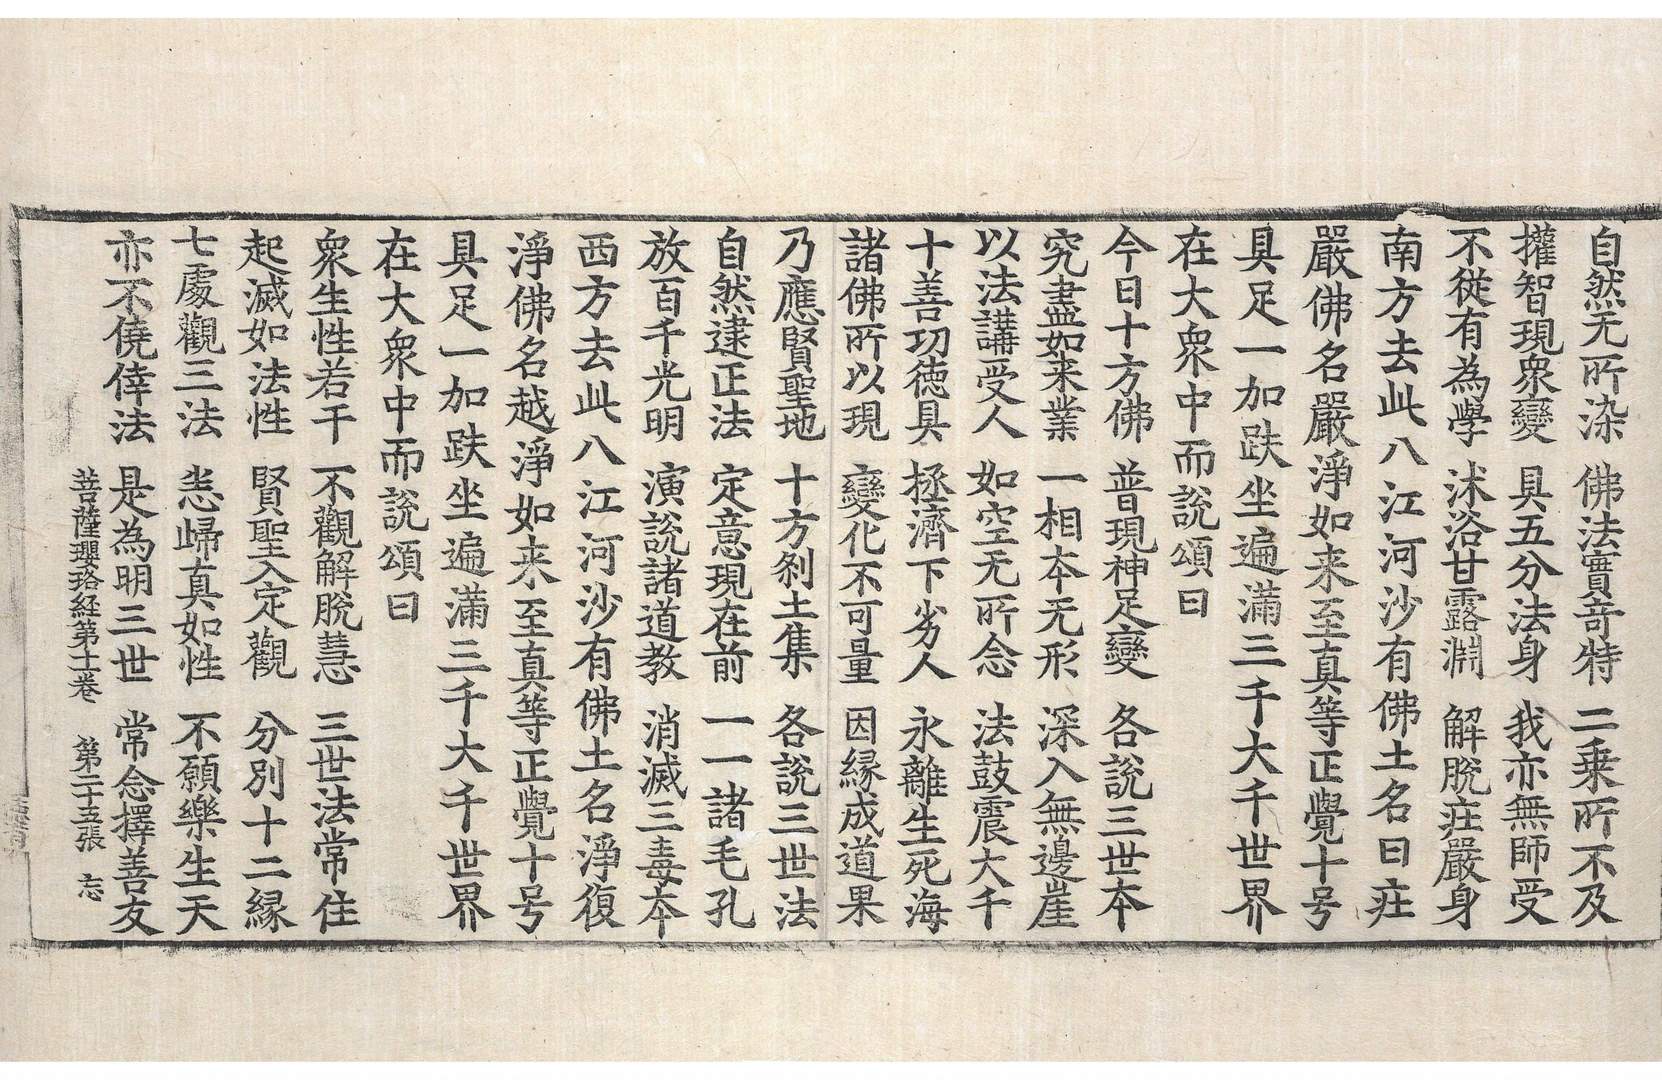 自然无所染 佛法實竒特 二乗所不及
攉智現衆變 具五分法身 我亦無師受
不從有為學 沐浴甘露淵 解脫㽵嚴身
南方去此八江河沙有佛土名曰㽵
嚴佛名嚴淨如来至真等正覺十号
具足一加趺坐遍滿三千大千世界
在大衆中而說頌曰
今日十方佛 普現神足變 各說三世本
究盡如来業 一相本无形 深入無邊崖
以法講受人 如空无所念 法鼓震大千
十善功徳具 拯濟下劣人 永離生死海
諸佛所以現 變化不可量 因縁成道果
乃應賢聖地 十方刹土集 各說三世法
自然逮正法 定意現在前 一一諸毛孔
放百千光明 演說諸道教 消滅三毒本
西方去此八江河沙有佛土名淨復
淨佛名越淨如来至真等正覺十号
具足一加趺坐遍滿三千大千世界
在大衆中而說頌曰
衆生性若干 不觀解脫慧 三世法常住
起滅如法性 賢聖入定觀 分別十二縁
七處觀三法 恙歸真如性 不願樂生天
亦不僥倖法 是為明三世 常念擇善友
菩薩瓔珞経第十一卷 第二十五張 忘